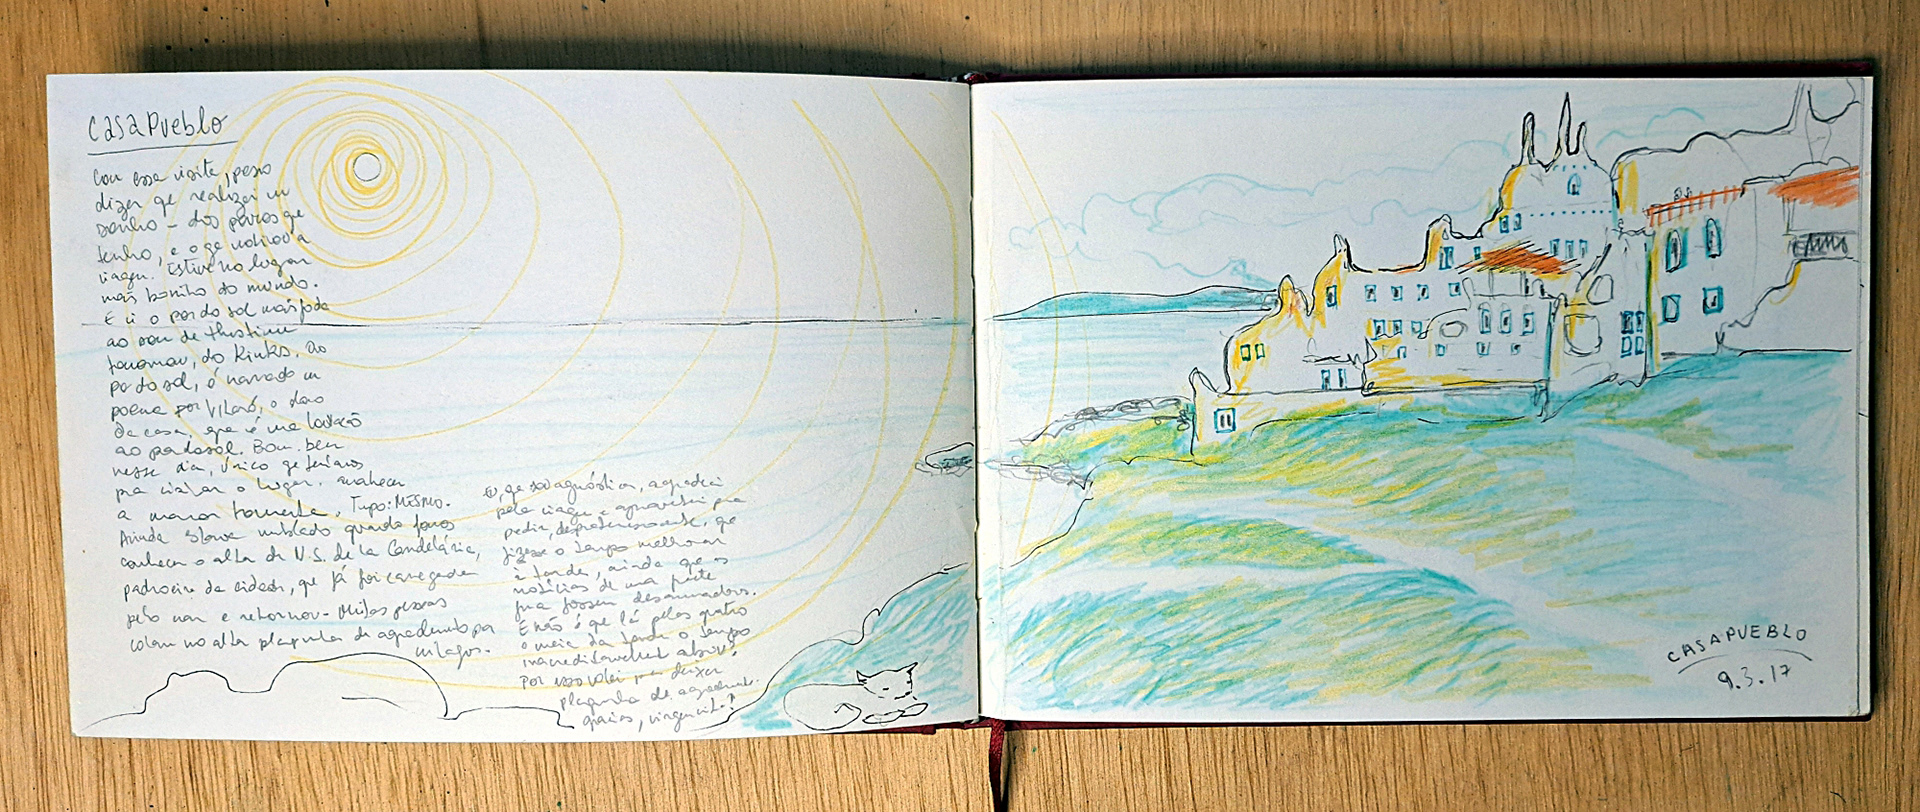 CasaPueblo
Com essa visita, posso
dizer qe realizei um
sonho - dos poucos qe
tenho, e o qe motivou a
viagem. Estive no lugar
mais bonito do mundo.
E vi o por do sol mais
ao som de
do Kinks. ao
por do sol, é narrado um
poema por Vilaró, o dono
da casa, que é uma louvação
ao por do sol. Bom. bem
nesse dia, único qe teríamos
pra visitar o lugar. amanheceu
a maior tormenta. Tipo: MESMO.
Ainda estava nublado quando fomos
conhecer o altar da N.S. de la Candelária,
padroeira da cidade, que já foi carregada
pelo mar e retornou. Muitas pessoas
colam no altar plaquinha de agradecimento por
milagres.
Eu, qe sou agnóstica, agradeci
pela viagem e aproveitei pra
pedir, despretensiosamente, qe
fizesse o tempo melhorar
à tarde, ainda que as
notícias de uma frente
fria fossem desanimadoras.
E não é qe lá pelas quatro
e meia da tarde o tempo
inacreditavelmente abriu,
por isso voltei pra deixar
plaquinha de agradecimento.
gracias, virgencita!
CASAPUEBLO
9.3.17